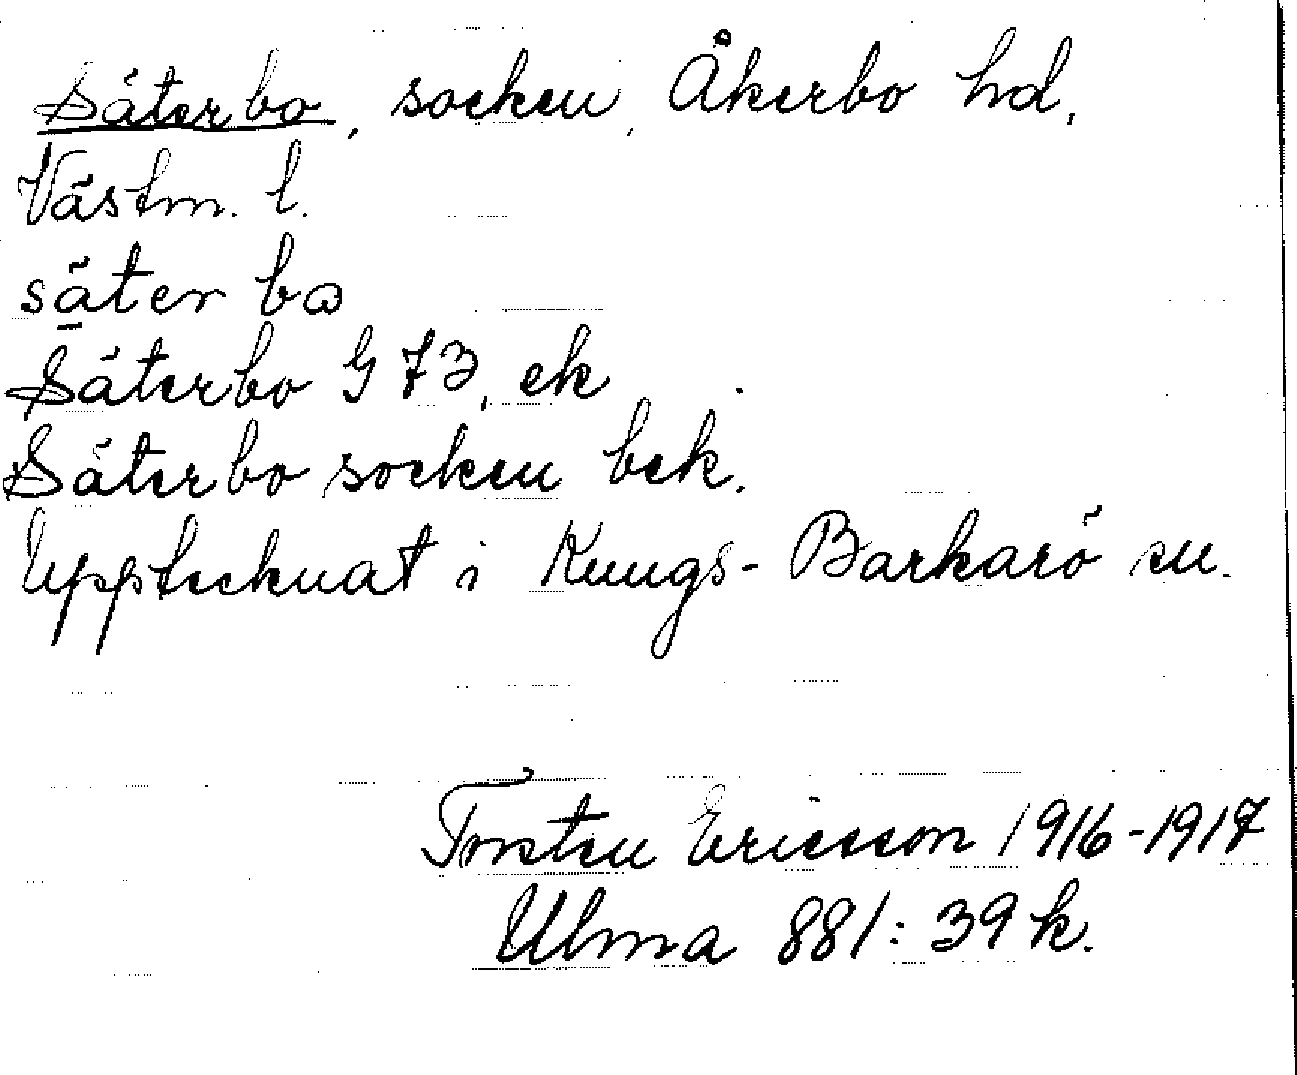 Säterbo, socken, Åkerbo hd,
Västm. l.
säter bω
Säterbo G 73, ek
Säterbo socken bek.
Upptecknat i Kungs-Barkarö sn.
Torsten Ericsson 1916-1917
Ulma 881:39 k.